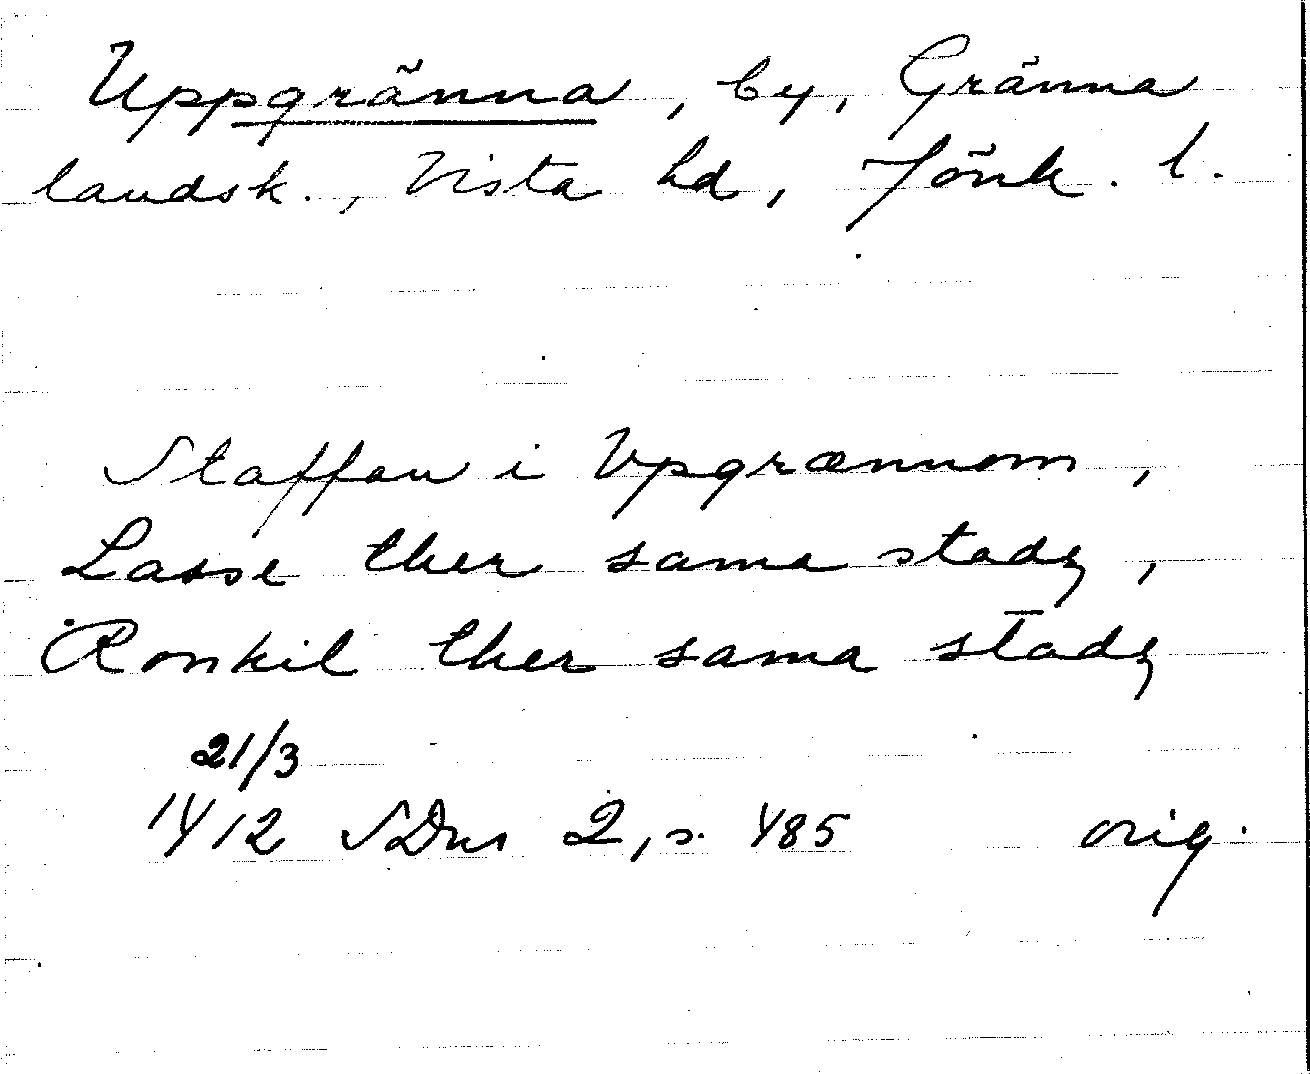 Uppgränna, by, Gränna
landsk., Vista hd, Jönk. l.
Staffan i Vpgrænnom,
Lasse ther sama stadz,
Ronkil ther sama stadz
21/3
1412 SDns 2, s. 485 orig.